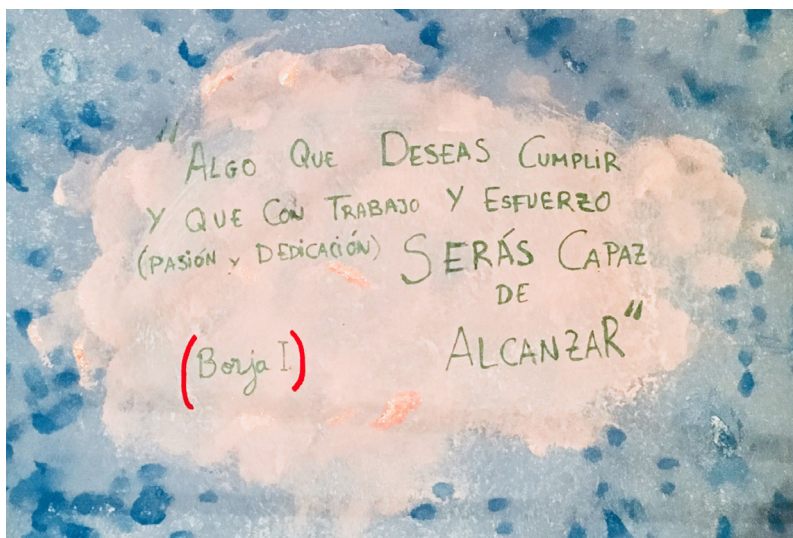 "ALGO QUE DESEAS CUMPLIR
Y QUE CON TRABAJO Y ESFUERZO
(PASIÓN Y DEDICACIÓN) SERÁS CAPAZ
DE
ALCANZAR"
(Borja I.)